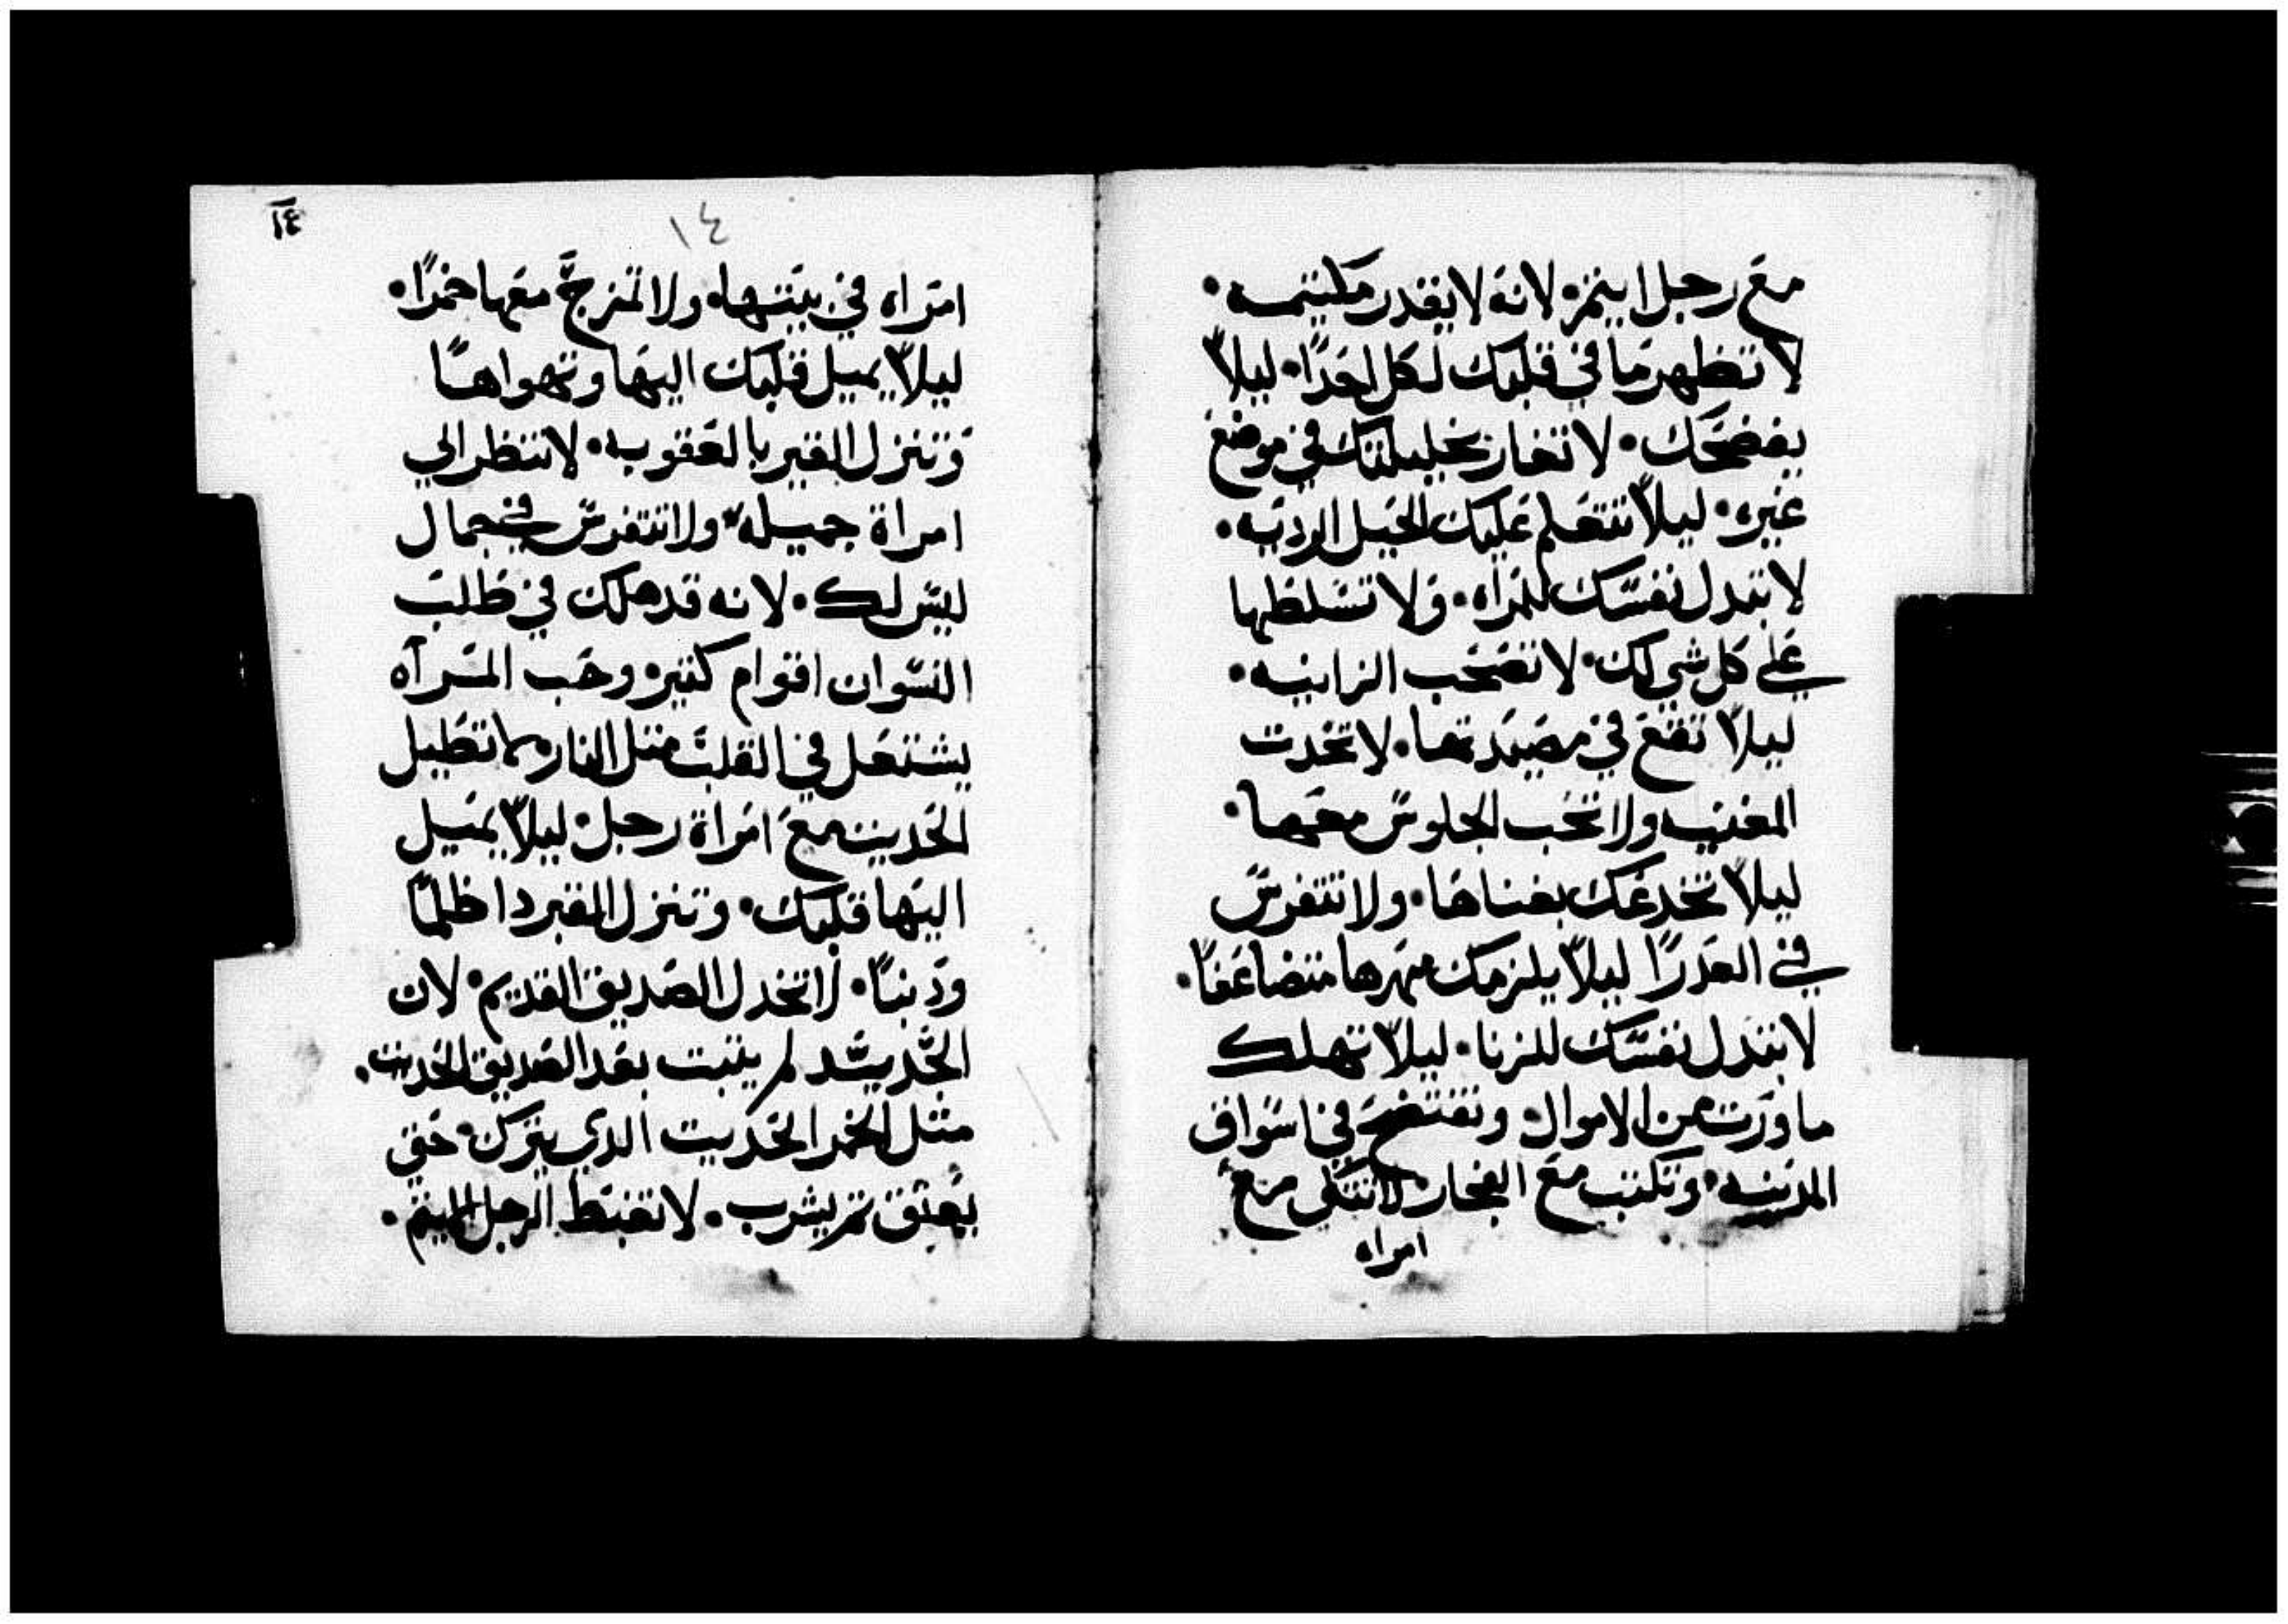 مع رجل اينم٠ لانه لا يقدر مكيتمه٠
لا تظهر ما في قلبك لكل احدًا٠ ليلاّ
يفضحك٠ لا تغار بخليلتك في موضع
غيره٠ ليلاّ تتعلم عليك الحيل الرديه٠
لا تبدل نفسّك للمراه٠ ولا تسّلطها
علي كل شي لك٠ لا تصحب الزانيه٠
ليلاّ تقع في مصيدتها٠ لا تحدت
المغنيه ولا تحب الجلوسّ معها٠
ليلاّ تخدعك بغناها٠ ولا تتفرسّ
في العدرًا ليلاّ يلزمك مهرها متضاعفًا٠
لا تبدل نفسّك للزنا٠ ليلاّ تهلك
ما ورت من الاموال٠ وتفتضح في اسّواق
المدينه٠ وتكتب مع الفجار٠ لا تتكي مع
امراه
١٤
١٤
امراه في بيتها٠ ولا تمزج معها خمرًا٠
ليلاّ يميل قلبك اليها وتهواها
وتنزل القبر بالعقوبه٠ لا تنظر الي
امراة جميله٠ ولا تتفرسّ في جمال
ليسّ لك٠ لانه قد هلك في طلب
النسّوان اقوام كتيره وحب المرآه
يشتعل في القلب متل النار٠ لا تطيل
الحديت مع امراة رجل٠ ليلاّ يميل
اليها قلبك٠ وتنزل القبر دا ظلمًا
ودنبًا٠ لا تخدل الصديق القديم٠ لان
الجديد لم يتبت بعد الصديق الحديت٠
متل الخمر الحديت الدي يترك٠ حتي
يعتق تم يشرب٠ لا تغبط الرجل الاتيم٠